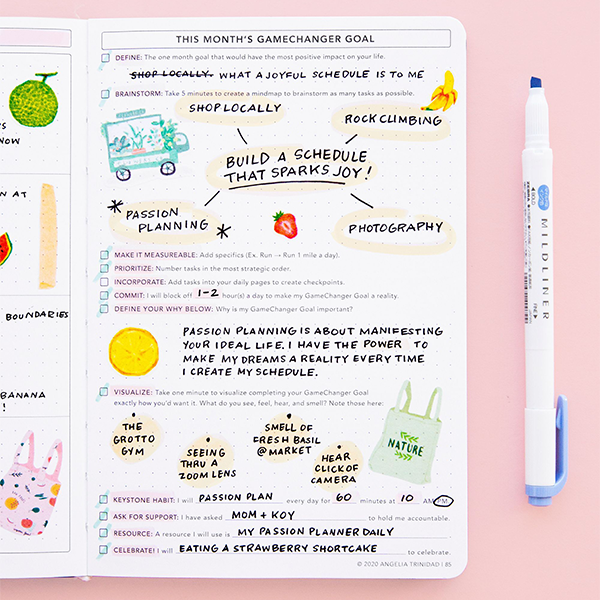 S
NOW
N AT
BOUNDARIES
BANANA
!
THIS MONTH'S GAMECHANGER GOAL
DEFINE: The one month goal that would have the most positive impact on your life.
SHOP LOCALLY. WHAT A JOYFUL SCHEDULE IS TO ME
BRAINSTORM: Take 5 minutes to create a mindmap to brainstorm as many tasks as possible.
SHOP LOCALLY
ROCK CLIMBING
BUILD A SCHEDULE
THAT SPARKS JOY!
* PASSION
PLANNING *
PHOTOGRAPHY
MAKE IT MEASUREABLE: Add specifics (Ex. Run → Run 1 mile a day).
PRIORITIZE: Number tasks in the most strategic order.
INCORPORATE: Add tasks into your daily pages to create checkpoints.
COMMIT: I will block off 1-2 hour(s) a day to make my GameChanger Goal a reality.
DEFINE YOUR WHY BELOW: Why is my GameChanger Goal important?
PASSION PLANNING IS ABOUT MANIFESTING
YOUR IDEAL LIFE. I HAVE THE POWER TO
MAKE MY DREAMS A REALITY EVERY TIME
I CREATE MY SCHEDULE.
VISUALIZE: Take one minute to visualize completing your GameChanger Goal
exactly how you'd want it. What do you see, feel, hear, and smell? Note those here:
THE
GROTTO
GYM
SEEING
THRU A
ZOOM LENS
SMELL OF
FRESH BASIL
@MARKET
HEAR
CLICK OF
CAMERA
NATURE
KEYSTONE HABIT: I will PASSION PLAN every day for 60 minutes at 10 AM/PM
ASK FOR SUPPORT: I have asked MOM + KOY to hold me accountable.
RESOURCE: A resource I will use is MY PASSION PLANNER DAILY
CELEBRATE! I will EATING A STRAWBERRY SHORTCAKE to celebrate.
© 2020 ANGELIA TRINIDAD | 85
MILDLINER
FINE